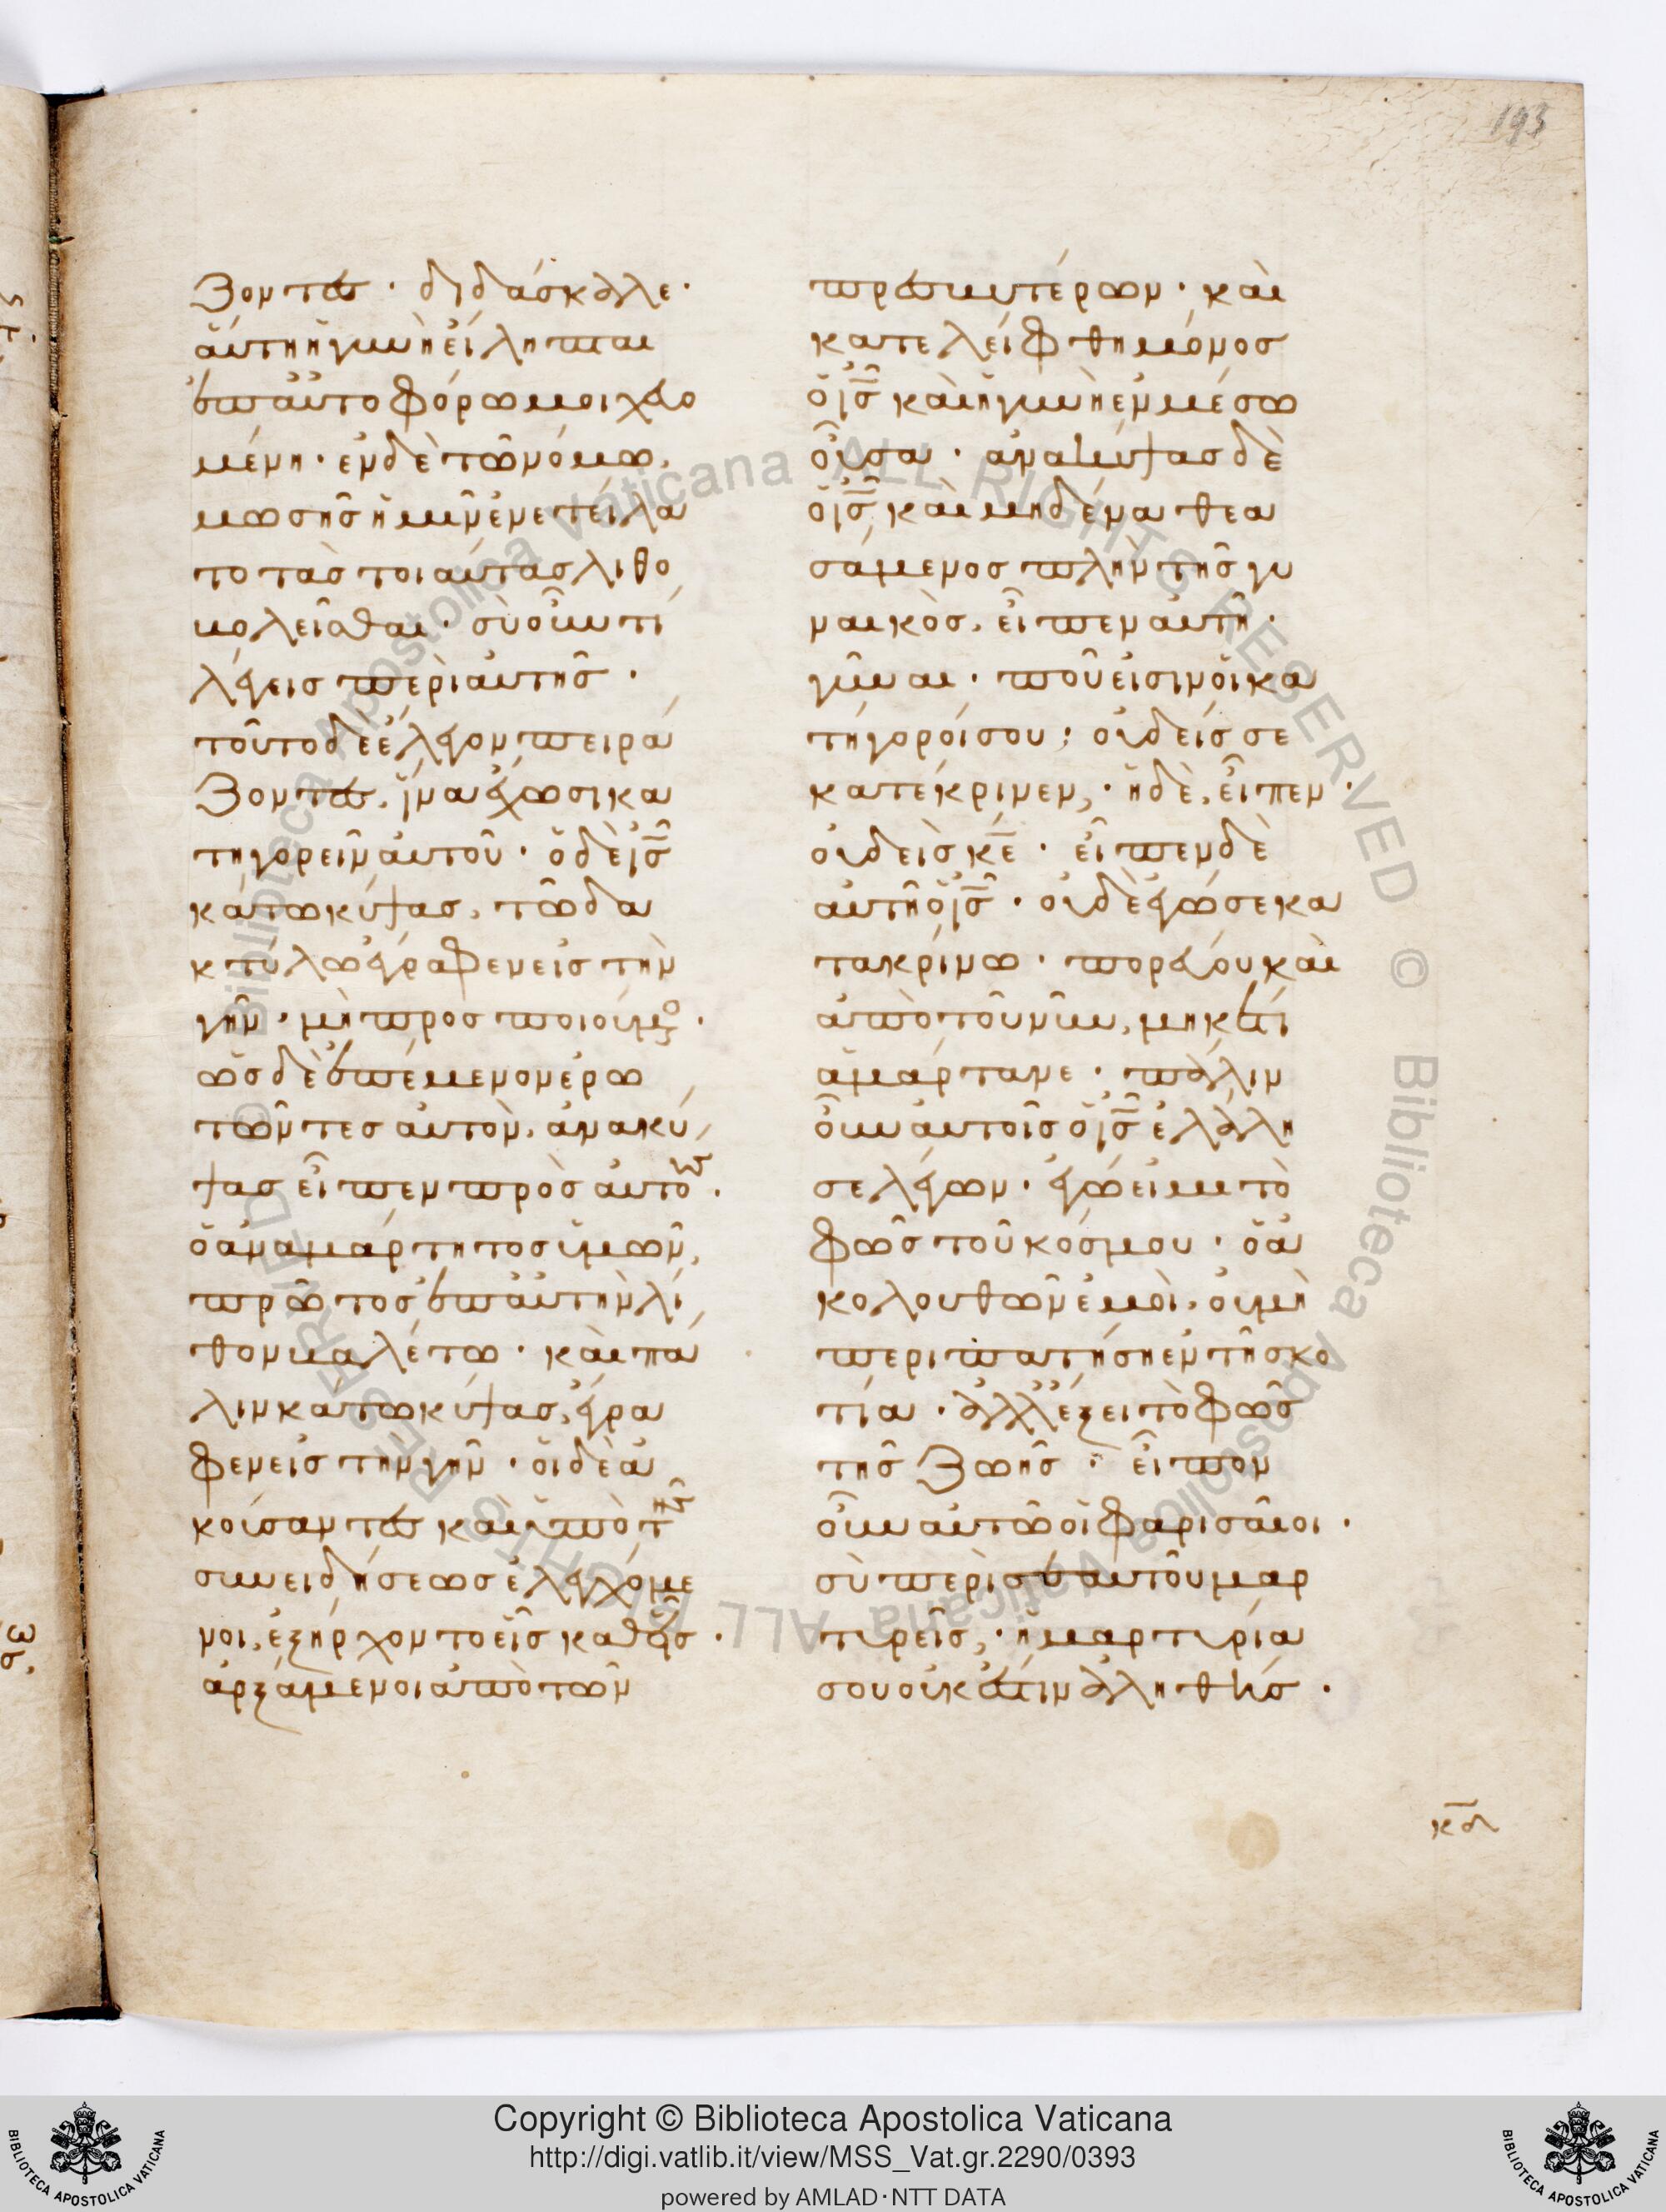 193
ζοντες · διδάσκαλε ·
ἅυτη ἡ γυνὴ ἐίληπται
ἐπ ἀυτοφόρω μοιχευο
μένη · ἐν δὲ τῶ νόμω,
μωσῆσ ἡμῖν ἐνετείλα
το τὰσ τοιαύτασ λιθο
βολεῖσθαι · σὺ οὖν τί
λέγεισ περὶ ἀυτῆσ ·
τοῦτο δὲ ἔλεγον πειρά
ζοντες, ἵνα ἔχωσι κα
τηγορεῖν ἀυτοῦ · ὁ δὲ ἰς
κάτω κύψασ, τῶ δα
κτύλω ἔγραφεν εἰσ τὴν
γῆν · μὴ προσποιούμενος ·
ὡσ δὲ ἐπέμενον ἐρω
τῶντεσ ἀυτὸν, ἀνακύ
ψασ εἶπεν πρὸσ ἀυτούς ·
ὁ ἀναμάρτητοσ ὑμῶν,
πρῶτοσ ἐπ ἀυτὴν λί
θον βαλέτω · καὶ πά
λιν κάτω κύψασ, ἔγρα
φεν εἰσ τὴν γῆν · ὁι δὲ ἀ
κούσαντες καὶ ὑπὸ τῆς
συνειδήσεωσ ἐλεγχόμε
νοι, ἐξήρχοντο εἷσ καθεῖσ ·
ἀρξάμενοι ἀπὸ τῶν
πρεσβυτέρων · καὶ
κατελείφθη μόνοσ
ὁ ἰς καὶ ἡ γυνὴ ἐν μέσω
οὖσα · ἀνακύψασ δὲ
ὁ ἰς, καὶ μηδένα θεα
σάμενοσ πλὴν τῆσ γυ
ναικὸσ, εἶπεν ἀυτῆ ·
γύναι · ποῦ εἰσιν ὁι κα
τήγοροί σου; οὐδείσ σε
κατέκρινεν, · ἡ δὲ, εἶπεν ·
οὐδεὶσ κε · εἶπεν δὲ
ἀυτῆ ὁ ἰς · οὐδὲ ἐγώ σε κα
τακρίνω · πορεύου καὶ
ἀπὸ τοῦ νῦν, μηκέτι
ἁμάρτανε · πάλιν
οὖν ἀυτοῖσ ὁ ἰς ἐλάλη
σε λέγων · ἐγώ εἰμι τὸ
φῶσ τοῦ κόσμου · ὁ ἀ
κολουθῶν ἐμοὶ, οὐ μὴ
περιπατήση ἐν τῆ σκο
τία · ἀλλ ἕξει τὸ φῶσ
τῆσ ζωῆσ · εἶπον
οὖν ἀυτῶ ὁι φαρισαῖοι ·
σὺ περὶ σεαυτοῦ μαρ
τυρεῖσ, · ἡ μαρτυρία
σου οὐκ ἔστιν ἀληθήσ ·
κδ
© Biblioteca Apostolica Vaticana ALL RIGHTS RESERVED © Biblioteca Apostolica Vaticana ALL RIGHTS RESERVED
Copyright © Biblioteca Apostolica Vaticana
http://digi.vatlib.it/view/MSS_Vat.gr.2290/0393
powered by AMLAD·NTT DATA
BIBLIOTECA APOSTOLICA VATICANA
BIBLIOTECA APOSTOLICA VATICANA